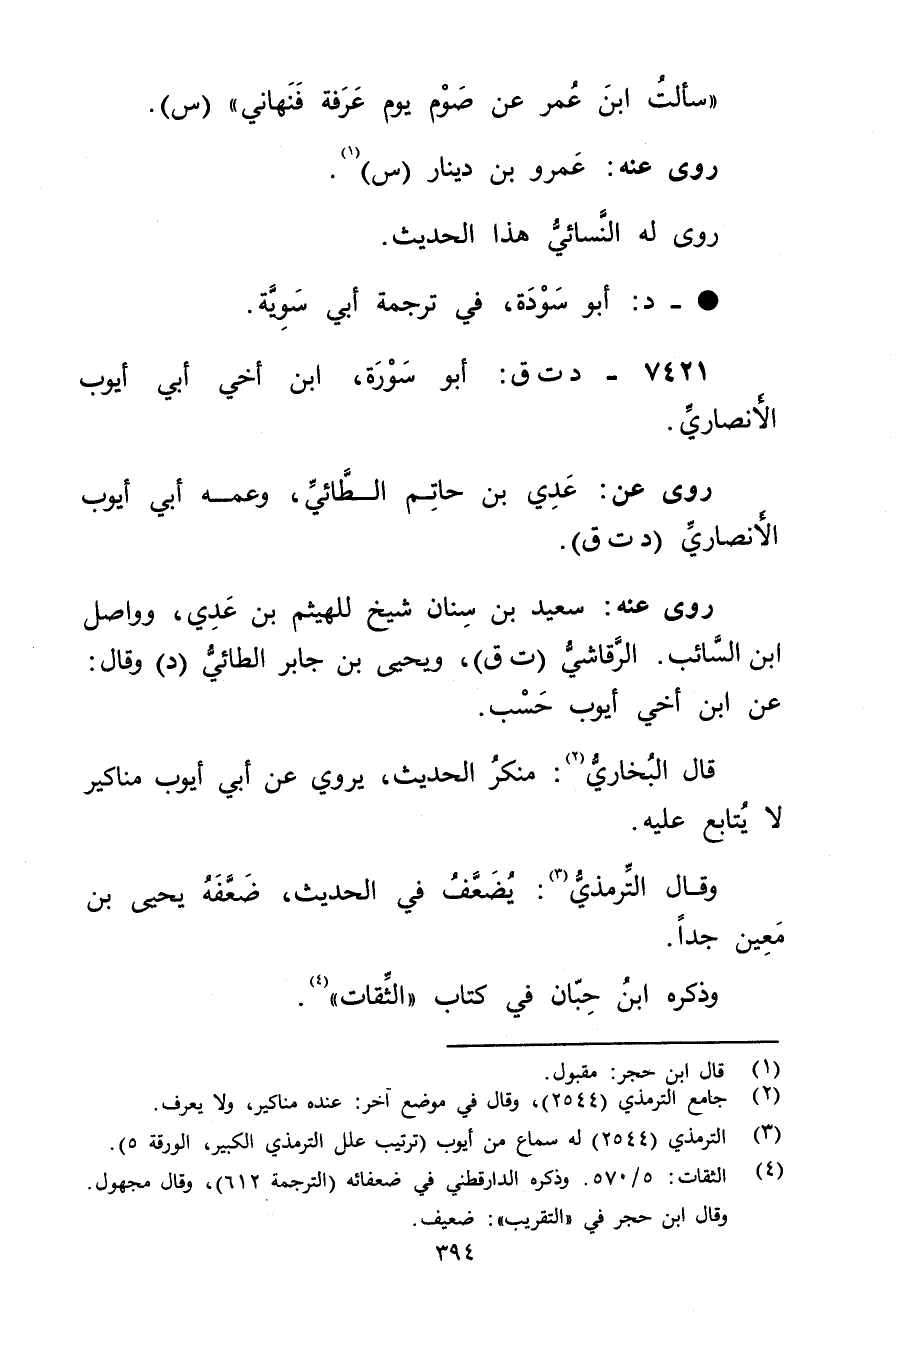 «سألتُ ابنَ عُمر عن صَوْم يوم عَرَفة فَنَهاني» (س).
روى عنه: عَمرو بن دينار (س)(١).
روى له النَّسائيُّ هذا الحديث.
● ـ د: أبو سَوْدَة، في ترجمة أبي سَوِيَّة.
٧٤٢١ ـ د ت ق: أبو سَوْرَة، ابن أخي أبي أيوب
الأَنصاريِّ.
روى عن: عَدِي بن حاتِم الطَّائيِّ، وعمه أبي أيوب
الأَنصاريِّ (د ت ق).
روى عنه: سعيد بن سِنان شيخ للهيثم بن عَدِي، وواصل
ابن السَّائب. الرَّقاشيُّ (ت ق)، ويحيى بن جابر الطائيُّ (د) وقال:
عن ابن أخي أيوب حَسْب.
قال البُخاريُّ(٢): منكرُ الحديث، يروي عن أبي أيوب مناكير
لا يُتابع عليه.
وقال التِّرمذيُّ(٣): يُضَعَّفُ في الحديث، ضَعَّفَهُ يحيى بن
مَعِين جداً.
وذكره ابنُ حِبّان في كتاب «الثِّقات»(٤).
(١) قال ابن حجر: مقبول.
(٢) جامع الترمذي (٢٥٤٤)، وقال في موضع آخر: عنده مناكير، ولا يعرف.
(٣) الترمذي (٢٥٤٤) له سماع من أيوب (ترتيب علل الترمذي الكبير، الورقة ٥).
(٤) الثقات: ٥/ ٥٧٠. وذكره الدارقطني في ضعفائه (الترجمة ٦١٢)، وقال مجهول.
وقال ابن حجر في «التقريب»: ضعيف.
٣٩٤